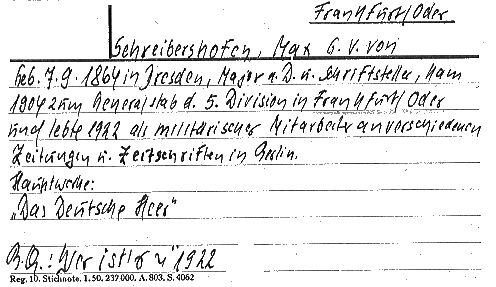 Frankfurt/Oder
Schreibershofen, Max G. V. von
Geb. 7. 9. 1864 in Dresden, Major a. D. u. Schriftsteller, kam
1904 zum Generalstab d. 5. Division in Frankfurt/Oder
und lebte 1922 als militärischer Mitarbeiter an verschiedenen
Zeitungen u. Zeitschriften in Berlin.
Hauptwerke:
„Das Deutsche Heer"
: Wer ist's 1922
Reg. 10. Stichnote. 1. 50. 237 000. A. 803. S. 4062